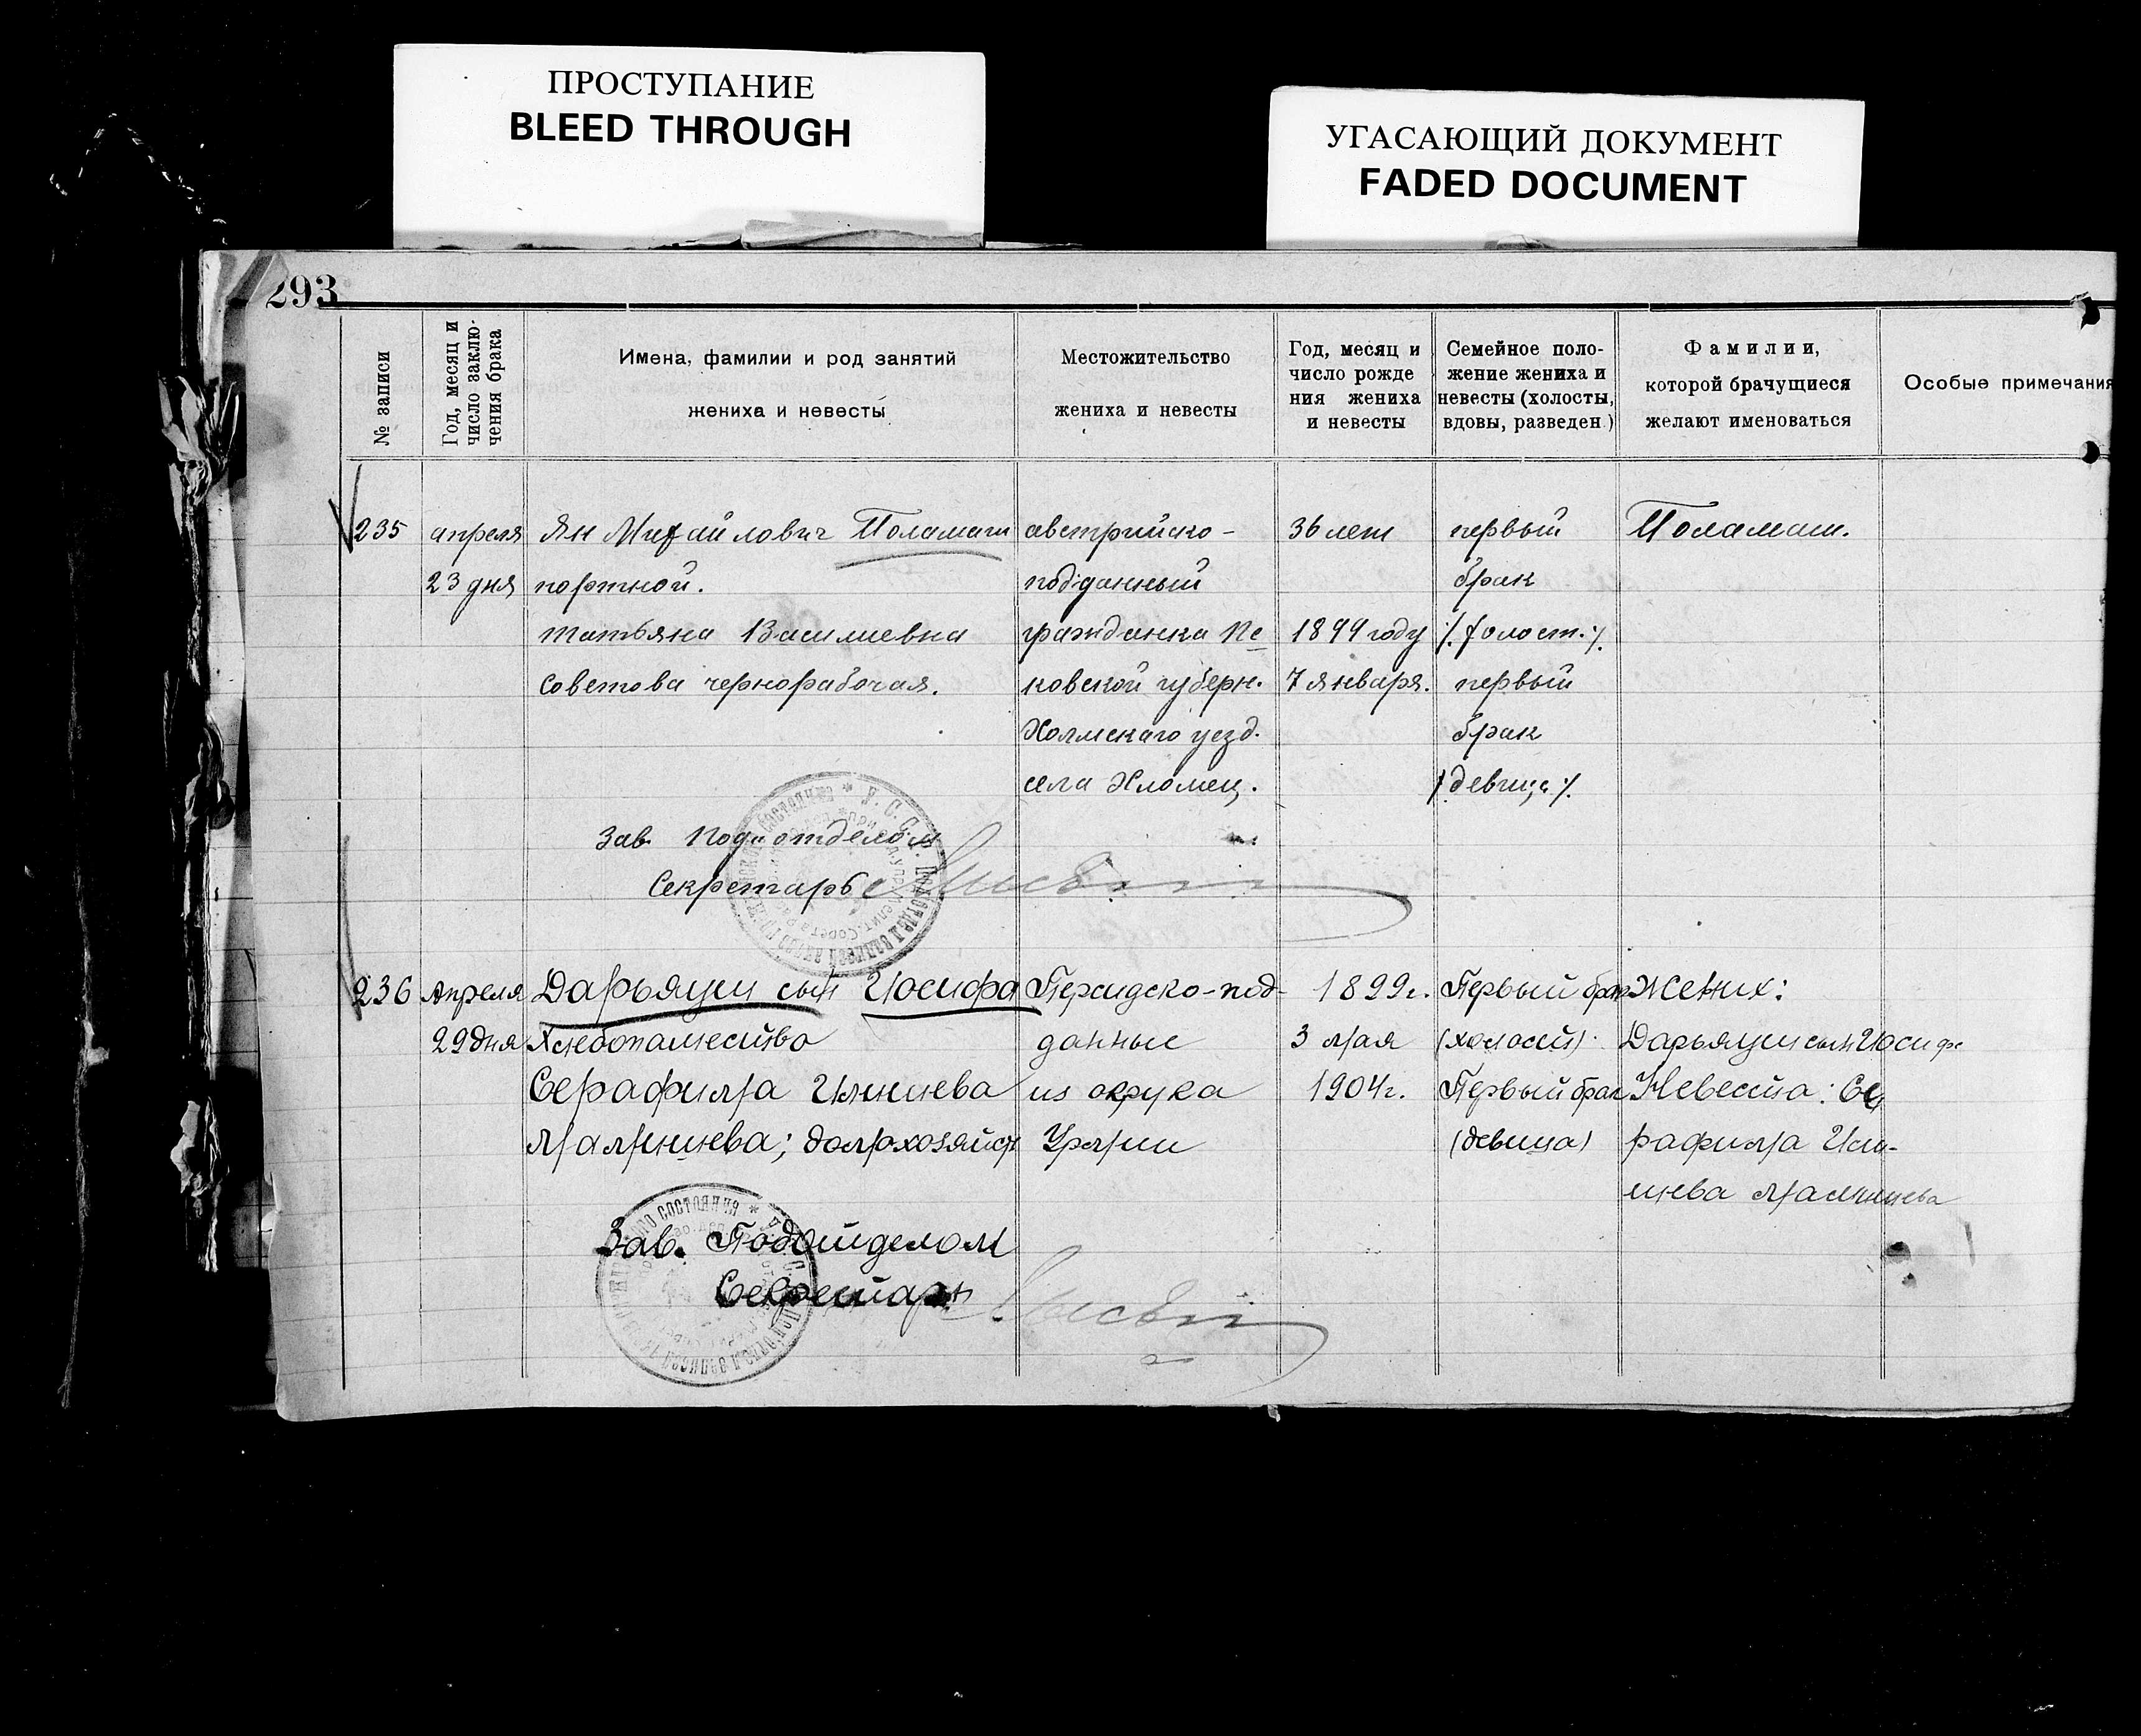 ПРОСТУПАНИЕ
BLEED THROUGH
УГАСАЮЩИЙ ДОКУМЕНТ
FADED DOCUMENT
293
№ записи
Год, месяц и
число заклю-
чения брака
Имена, фамилии и род занятий
жениха и невесты
Местожительство
жениха и невесты
Год, месяц и
число рожде
ния жениха
и невесты
Семейное поло-
жение жениха и
невесты (холосты,
вдовы, разведен.)
Фамилии,
которой брачущиеся
желают именоваться
Особые примечания
235
апреля
23 дня
Ян Михайлович Поламаш
портной.
Татьяна Василиевна
Советова чернорабочая.
австрийско-
подданный
гражданка Пс
ковской губерн.
Холмскаго уезд.
села Хломец.
36 лет
1899 году
7 января.
первый
брак
/холост./
первый
брак
/девица/
Поламаш.
Зав. Под-отделом
Секретарь
236
Апреля
29 дня
Дарьяуш сын Иосифа
Хлебопашество
Серафима Илишева
домохозяйст
Персидско-под-
данные
из округа
Урмии
1899г.
3 мая
1904г.
Первый брак
(холост)
Первый брак
(девица)
Жених:
Дарьяуш сын Иосифа
Невеста: Се
рафима Или-
шева
Зав. Подотделом
Секретарь